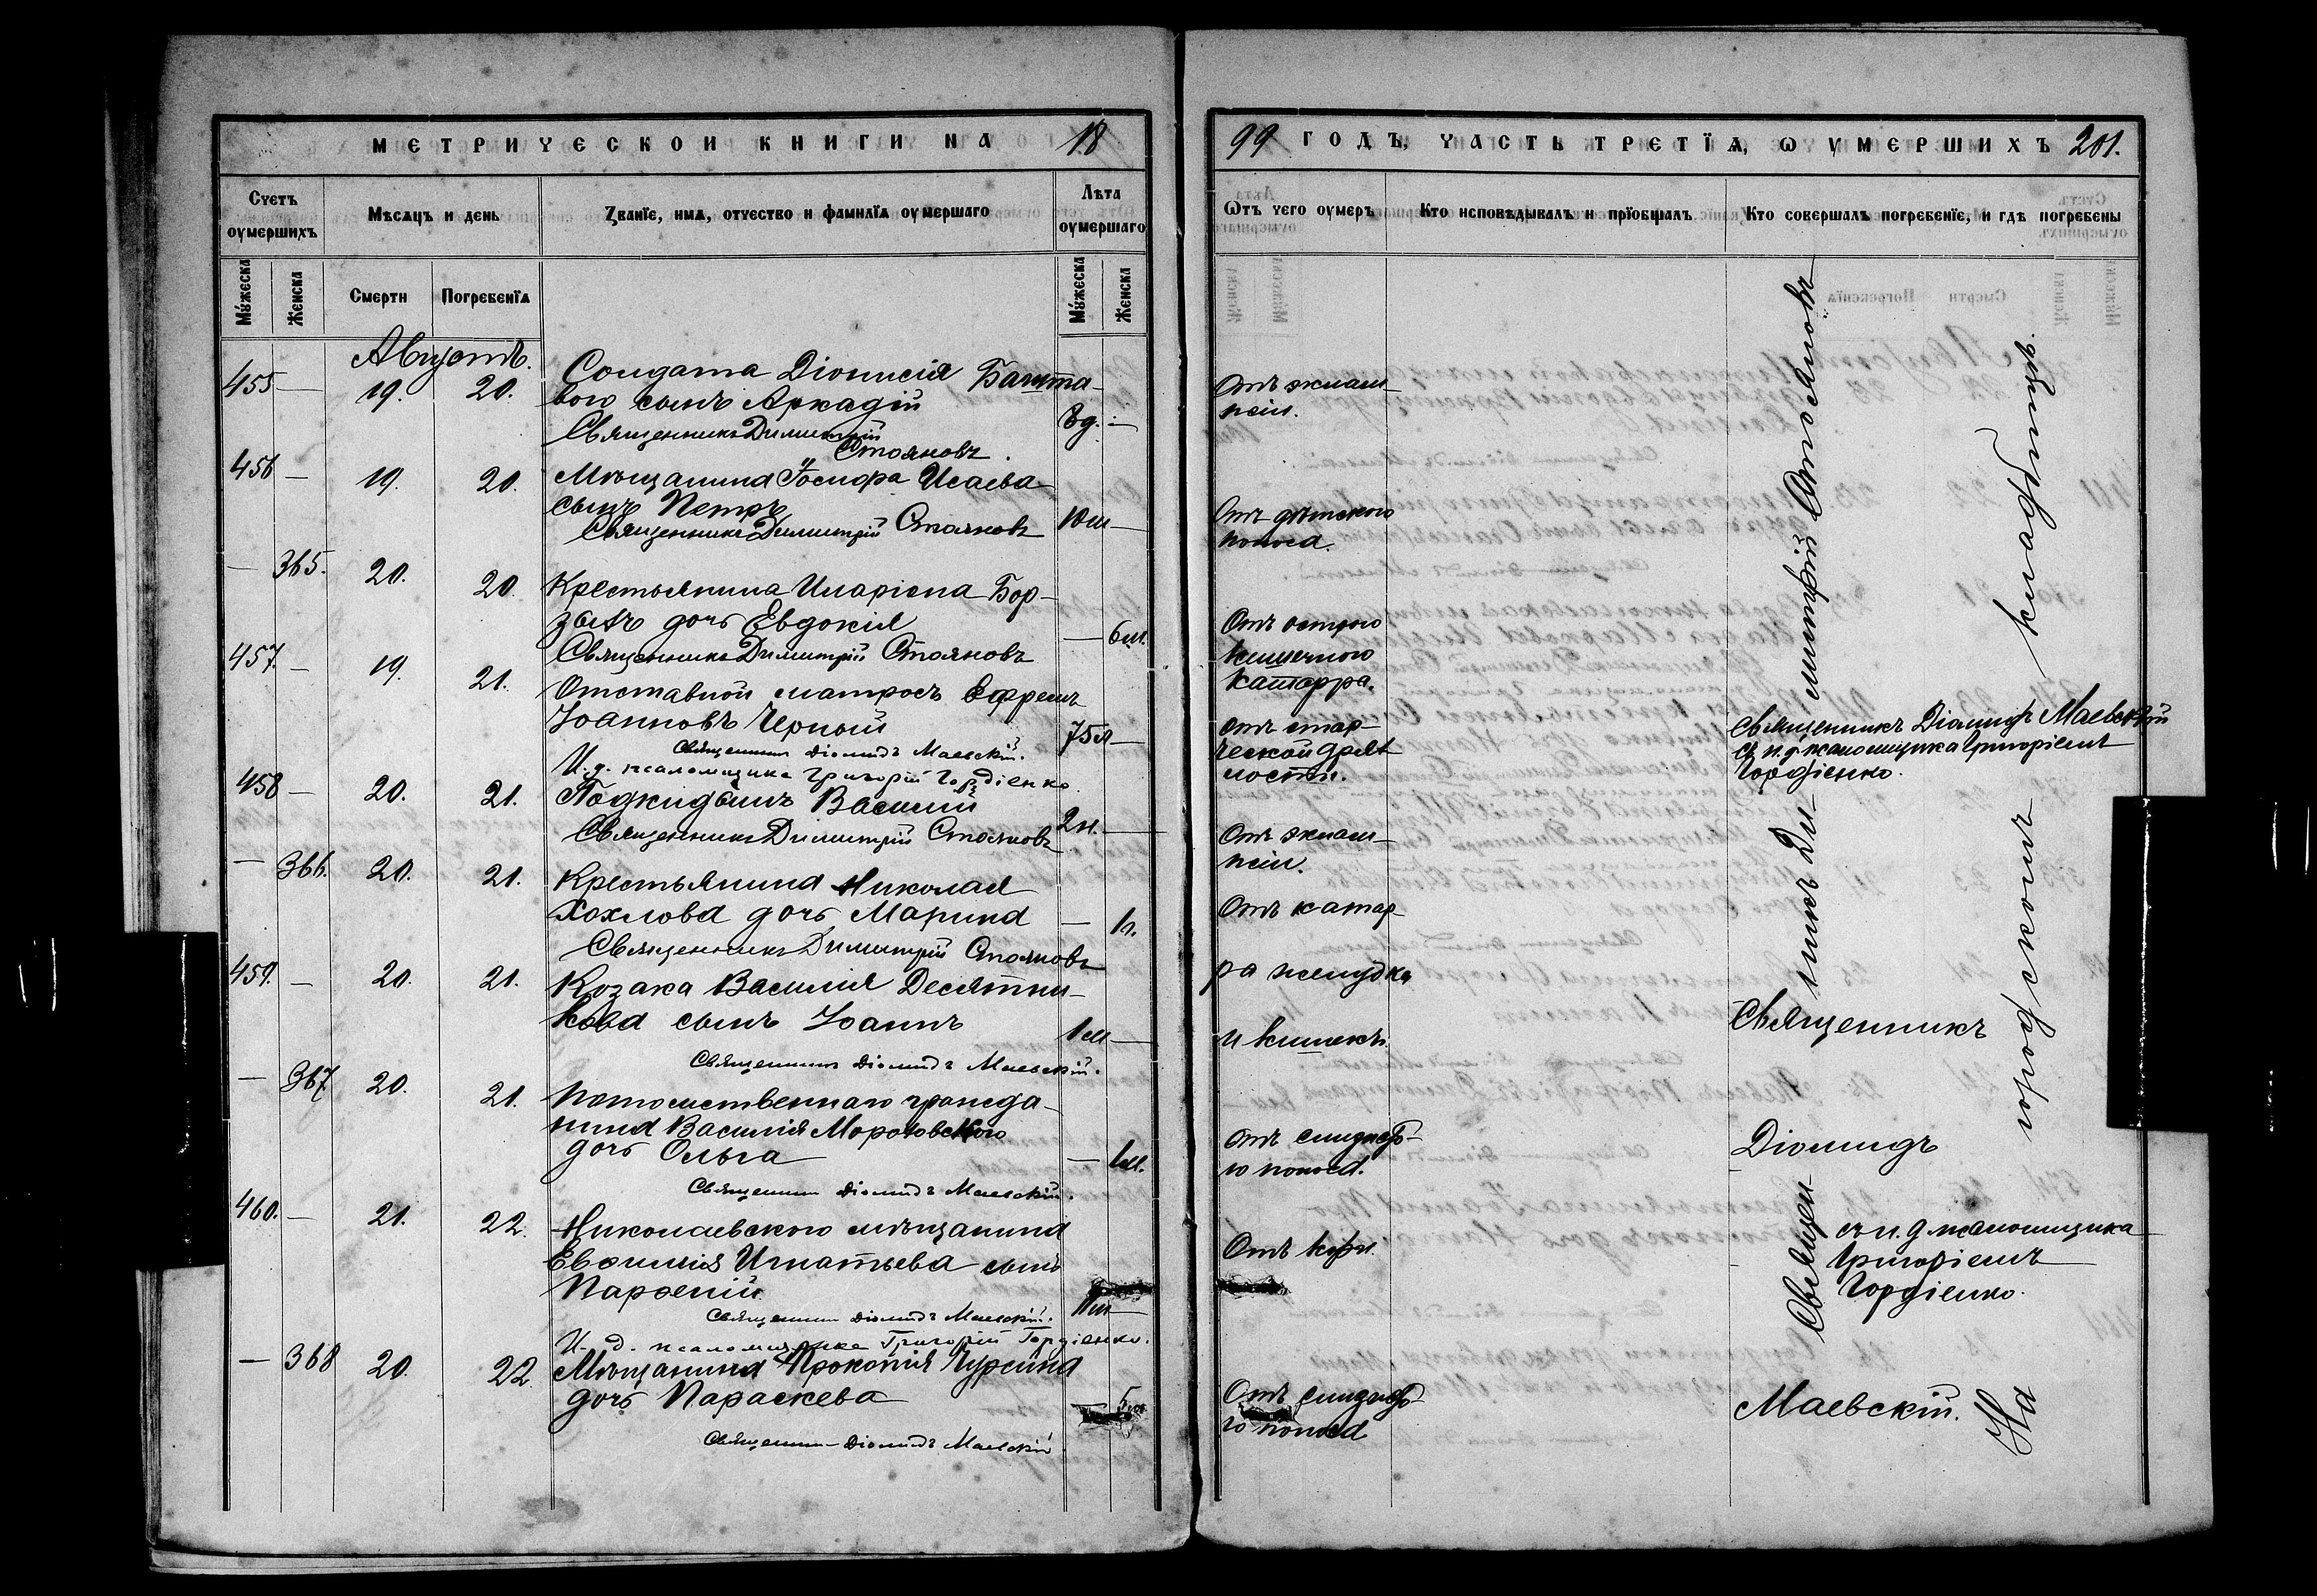 МЕТРИЧЕСКОЙ КНИГИ НА 18
99 ГОДЪ, ЧАСТЬ ТРЕТЇѦ, Ѡ УМЕРШИХЪ 201.
Счетъ оумершихъ
Мѣсяцъ и день
Званїе, имѧ, отчество и фамилїѧ оумершаго
Лѣта оумершаго
Ѿтъ чего оумеръ
Кто исповѣдывалъ и прїобщалъ
Кто совершалъ погребенїе, и гдѣ погребены
Мꙋжеска
Женска
Смерти
Погребенїѧ
Мꙋжеска
Женска
Августъ.
455 — 19. 20. Солдата Діонисія Башта-
вого сынъ Аркадій 8д. —
Священникъ Димитрій
Стояновъ.
Отъ эклам-
псіи.
456 — 19. 20. Мѣщанина Іосифа Исаева
сынъ Петръ 10м —
Священникъ Димитрій Стояновъ
Отъ дѣтского
поноса.
— 365. 20. 20. Крестьянина Иларіона Бор-
зыхъ дочь Евдокія — 6м.
Священникъ Димитрій Стояновъ
Отъ острого
кишечного
катарра.
457. — 19. 21. Отставной матросъ Ефремъ
Іоанновъ Черный 75л —
Священникъ Діомидъ Маевскій.
И. д. псаломщика Григорій Гордіенко.
отъ стар-
ческой дрях
лости.
Священникъ Діомидъ Маевскій
съ и. д. псаломщика Григоріемъ
Гордіенко.
458 — 20. 21. Подкидышъ Василій 2н. —
Священникъ Димитрій Стояновъ
Отъ эклам-
псіи.
— 366. 20. 21. Крестьянина Николая
Хохлова дочь Марина — 1г.
Священникъ Димитрій Стояновъ
Отъ катар-
ра желудка
и кишекъ.
459. — 20. 21. Козака Василія Десятни-
кова сынъ Іоаннъ 1м —
Священникъ Діомидъ Маевскій.
— 367 20. 21. Потомственнаго гражда-
нина Василія
дочь Ольга — 1м.
Священникъ Діомидъ Маевскій.
поноса.
460. — 21. 22. Николаевского мѣщанина
Евфимія Игнатьева сынъ
Парфеній. 11м —
Священникъ Діомидъ Маевскій.
И. д. псаломщика Григорій Гордіенко.
Отъ кори.
— 368 20. 22. Мѣщанина Прокопія Чурсина
дочь Параскева — 5м
Священникъ Діомидъ Маевскій.
поноса
Священникъ
Діомидъ
съ и. д. псаломщика
Григоріемъ
Гордіенко.
Маевскій.
Священникъ Димитрій Стояновъ
На городскомъ кладбищѣ.